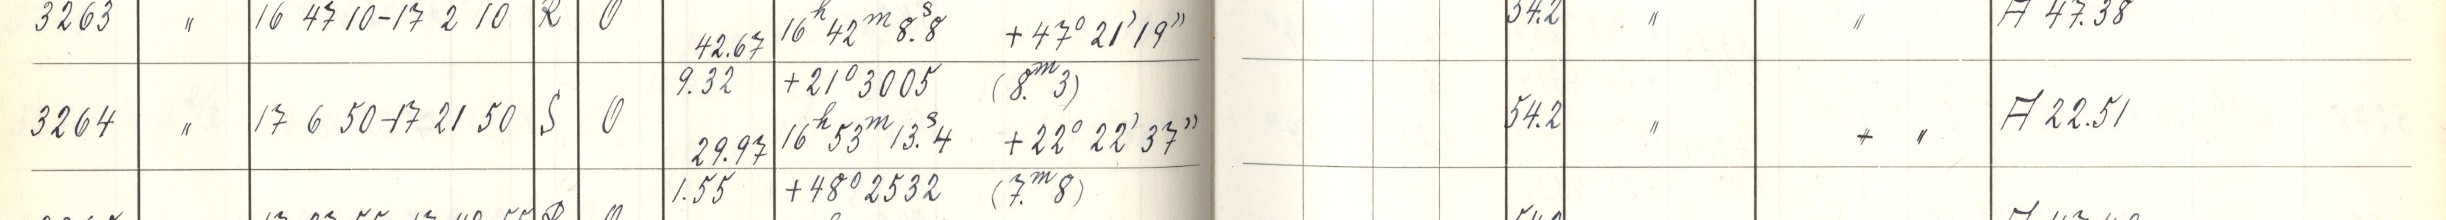 3263 " 16 47 10-17 2 10 R O 42.67 16ʰ 42ᵐ 8.ˢ8 +47° 21' 19" 54.2 " " A 47.38
9.32 +21° 3005 (8.ᵐ3)
3264 " 17 6 50-17 21 50 S O 29.97 16ʰ 53ᵐ 13.ˢ4 +22° 22' 37" 54.2 " + " A 22.51
1.55 +48° 2532 (7.ᵐ8)